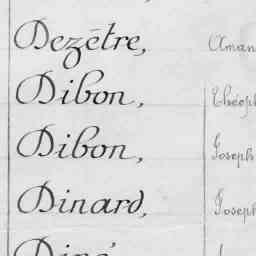 Dezêtre, Aman
Dibon, Théoph
Dibon, Joseph
Dinard, Joseph